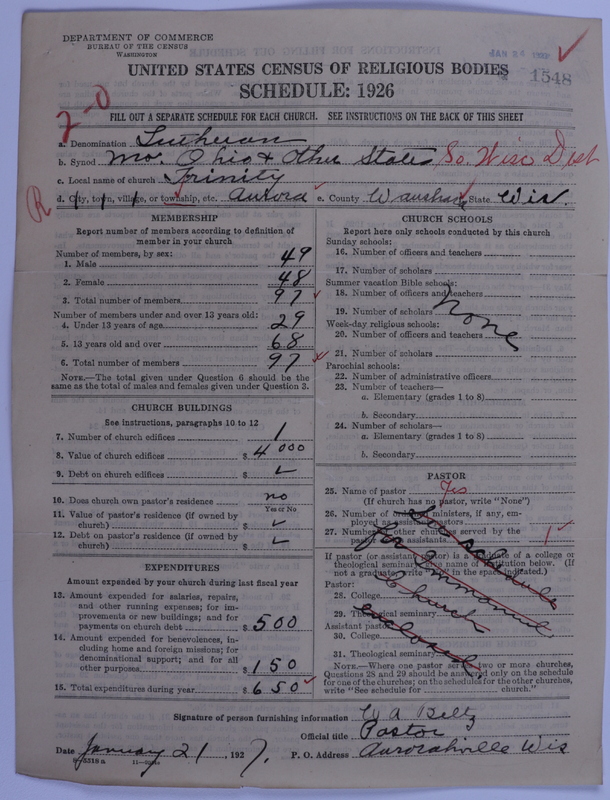 DEPARTMENT OF COMMERCE
BUREAU OF THE CENSUS
WASHINGTON
1548
UNITED STATES CENSUS OF RELIGIOUS BODIES
SCHEDULE: 1926
2-0
FILL OUT A SEPARATE SCHEDULE FOR EACH CHURCH. SEE INSTRUCTIONS ON THE BACK OF THIS SHEET
a. Denomination Lutheran
b. Synod Mo. Ohio & Other States So. Wisc Dist
c. Local name of church Trinity
R d. City, town, village, or township, etc. Aurora e. County Waushara State Wis.
MEMBERSHIP
Report number of members according to definition of
member in your church
Number of members, by sex:
1. Male 49
2. Female 48
3. Total number of members 97
Number of members under and over 13 years old:
4. Under 13 years of age 29
5. 13 years old and over 68
6. Total number of members 97
NOTE.—The total given under Question 6 should be the
same as the total of males and females given under Question 3.
CHURCH BUILDINGS
See instructions, paragraphs 10 to 12
7. Number of church edifices 1
8. Value of church edifices $ 4000
9. Debt on church edifices $
10. Does church own pastor's residence no
Yes or No
11. Value of pastor's residence (if owned by
church) $
12. Debt on pastor's residence (if owned by
church) $
EXPENDITURES
Amount expended by your church during last fiscal year
13. Amount expended for salaries, repairs,
and other running expenses; for im-
provements or new buildings; and for
payments on church debt $ 500
14. Amount expended for benevolences, in-
cluding home and foreign missions; for
denominational support; and for all
other purposes $ 150
15. Total expenditures during year $ 650
CHURCH SCHOOLS
Report here only schools conducted by this church
Sunday schools:
16. Number of officers and teachers
17. Number of scholars
Summer vacation Bible schools:
18. Number of officers and teachers
19. Number of scholars none
Week-day religious schools:
20. Number of officers and teachers
21. Number of scholars
Parochial schools:
22. Number of administrative officers
23. Number of teachers—
a. Elementary (grades 1 to 8)
b. Secondary
24. Number of scholars—
a. Elementary (grades 1 to 8)
b. Secondary
PASTOR
25. Name of pastor Yes
(If church has no pastor, write "None")
26. Number of ordained ministers, if any, em-
ployed as assistant pastors
27. Number of other churches served by the
pastor and assistants 1
If pastor (or assistant pastor) is a graduate of a college or
theological seminary, give name of institution below. (If
not a graduate, write "No" in the space indicated.)
See schedule
for Emmanuel
Church
enclosed
Pastor:
28. College
29. Theological seminary
Assistant pastor:
30. College
31. Theological seminary
NOTE.—Where one pastor serves two or more churches,
Questions 28 and 29 should be answered only on the schedule
for one of the churches; on the schedules for the other churches,
write "See schedule for church."
Signature of person furnishing information W A Beltz
Official title Pastor
Date January 21, 1927. P. O. Address Aurorahville Wis